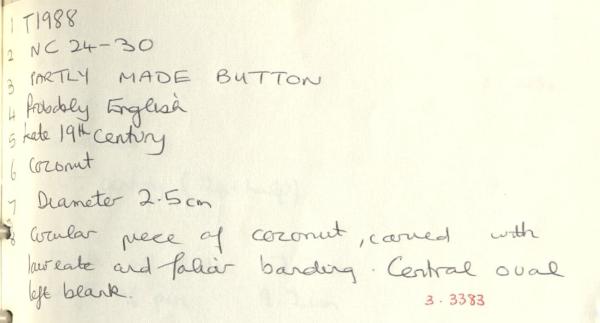 1 T1988
2 NC 24-30
3 PARTLY MADE BUTTON
4 Probably English
5 Late 19th Century
6 Coconut
7 Diameter 2.5cm
8 Circular piece of coconut, carved with
laureate and foliar banding. Central oval
left blank.
3.3383